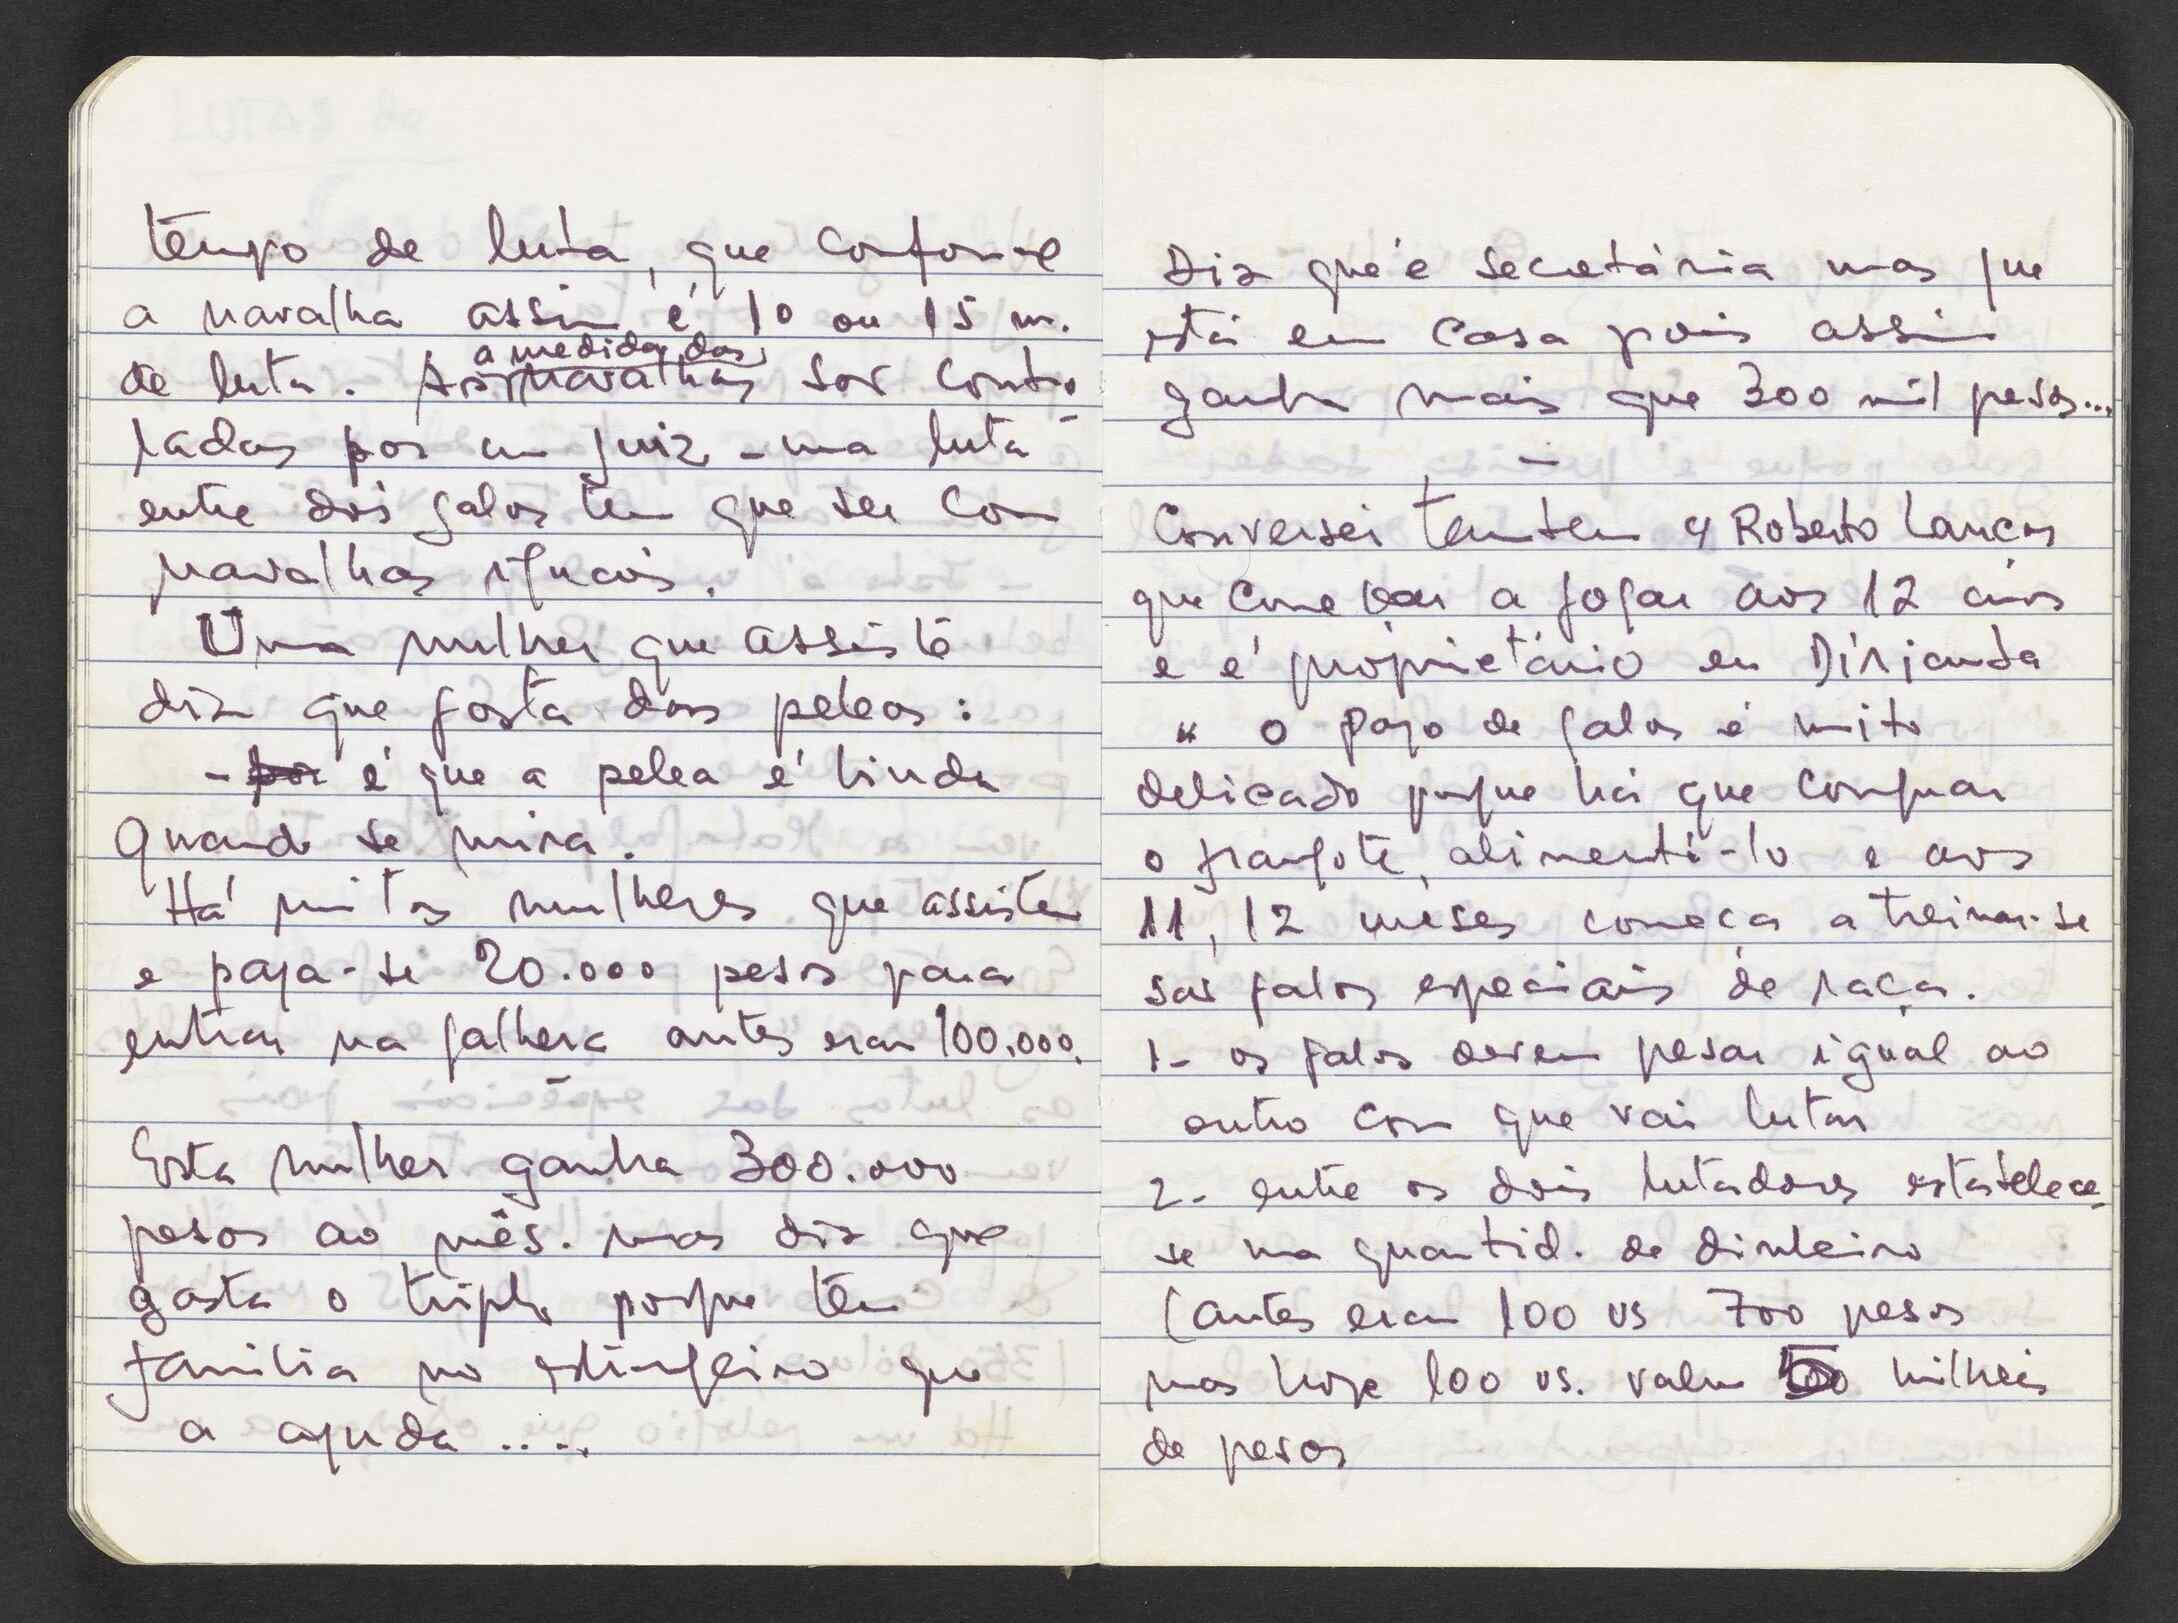 tempo de luta, que conforme
a navalha assim é 10 ou 15 m.
a medida das
de luta. As navalhas são contro
ladas por um juiz - uma luta
entre dois galos tem que ser com
navalhas iguais.
Uma mulher que assiste
diz que gosta das peleas:
- por é que a pelea é linda
quando se mira.
Há muitas mulheres que assistem
e paga-se 20.000 pesos para
entrar na galhera antes eram 100.000.
Esta mulher ganha 300.000
pesos ao mês. mas diz que
gasta o triplo porque tem
familia no estrangeiro que
a ajuda ....
Diz que é secretária mas que
está em casa pois assim
ganha mais que 300 mil pesos...
-
Conversei também c/ Roberto
que começou a jogar aos 12 anos
e é proprietário em Dirianba
" o jogo de galos é muito
delicado porque há que comprar
o frangote, alimentá-lo e aos
11, 12 meses começa a treinar-se
são galos especiais de raça.
1- os galos devem pesar igual ao
outro com que vai lutar
2- entre os dois lutadores estabelece-
se uma quantid. de dinheiro
(antes eram 100 US 700 pesos
mas hoje 100 US. valem milhões
de pesos